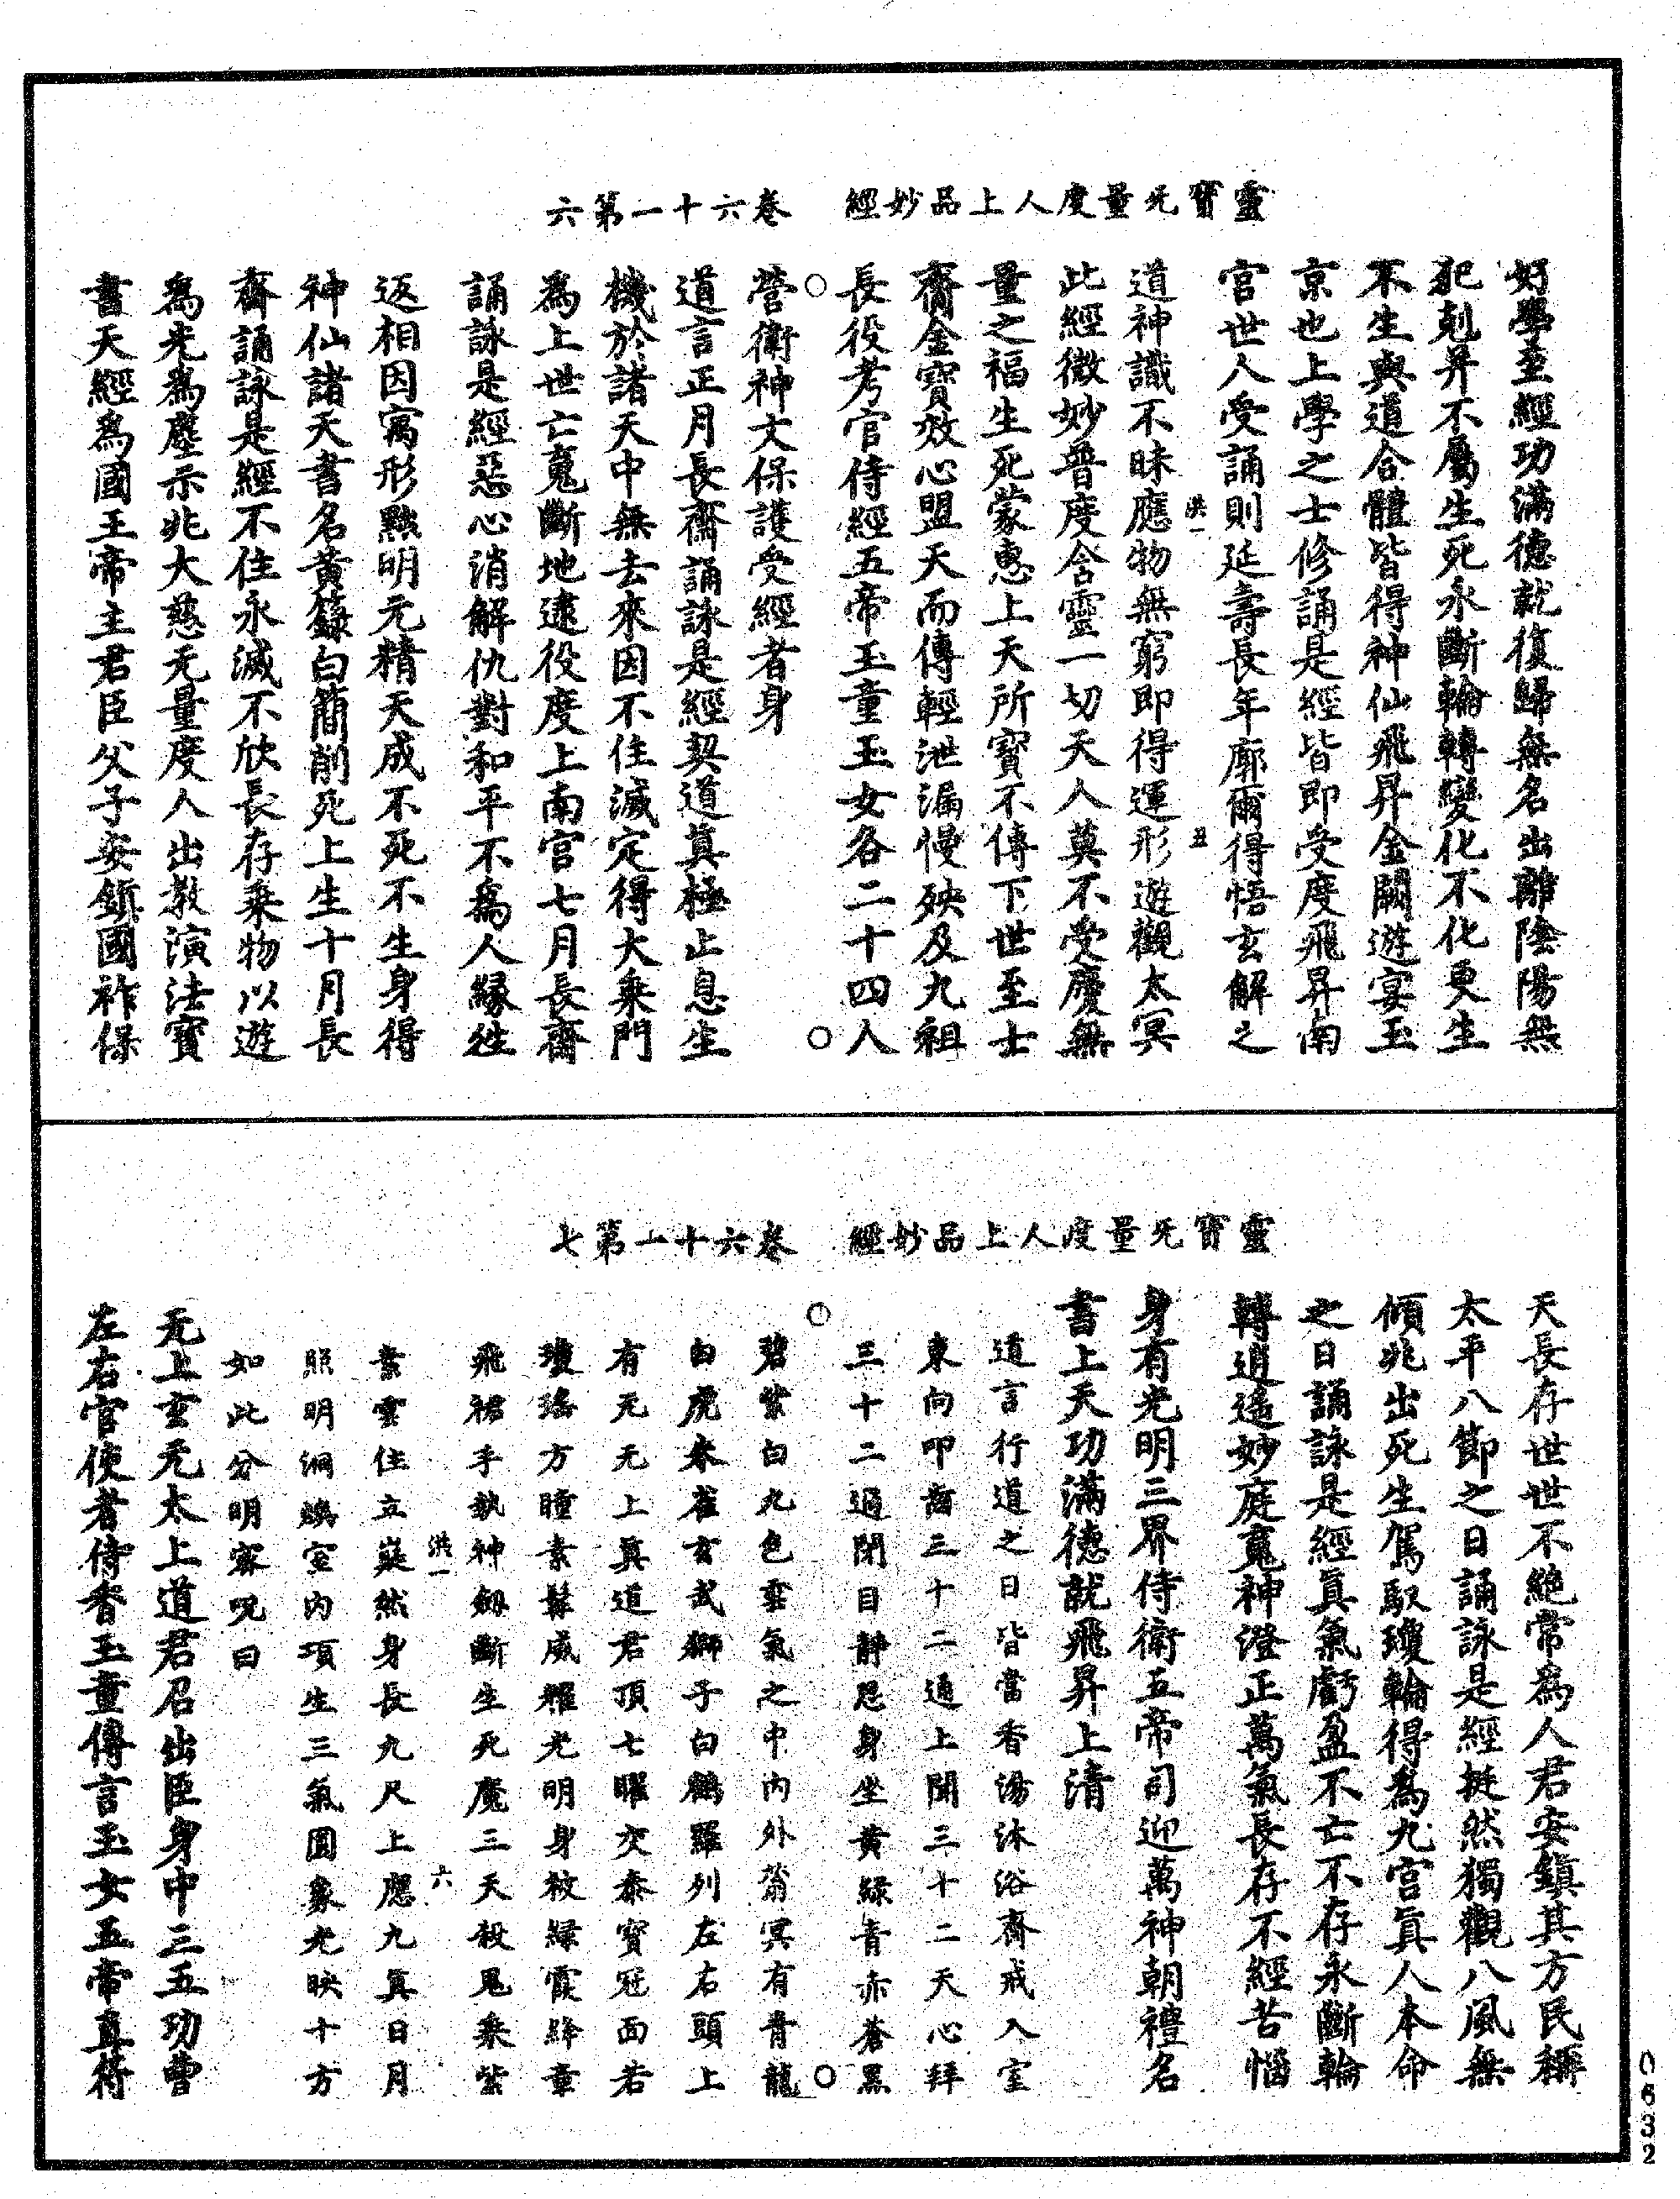 靈寶无量度人上品妙經　卷六十一第六
好學至經功滿德就復歸無名出離陰陽無
犯剋昇不屬生死永斷輪轉變化不化更生
不生與道合體皆得神仙飛昇金闕遊宴玉
京也上學之士修誦是經皆即受度飛昇南
宮世人受誦則延壽長年廓爾得悟玄解之
洪一　五
道神識不昧應物無窮即得運形遊觀太冥
此經微妙普度含靈一切天人莫不受慶無
量之福生死蒙惠上天所寶不傳下世至士
齎金寶效心盟天而傳輕泄漏慢殃及九祖
長役考官侍經五帝玉童玉女各二十四人
營衛神文保護受經者身
道言正月長齋誦詠是經契道真極止息生
機於諸天中無去來因不住滅定得大乘門
為上世亡䰟斷地逮役度上南宮七月長齋
誦詠是經惡心消解仇對和平不為人緣徃
返相因寓形㸃明元精天成不死不生身得
神仙諸天書名黃籙白簡削死上生十月長
齋誦詠是經不住永滅不欣長存乘物以遊
為光為塵示兆大慈无量度人出教演法寶
書天經為國王帝主君臣父子安鎮國祚保
靈寶无量度人上品妙經　卷六十一第七
天長存世世不絕常為人君安鎮其方民稱
太平八節之日誦詠是經挺然獨觀八風無
傾兆出死生駕馭瓊輪得為九宮真人本命
之日誦詠是經真氣虧盈不亡不存永斷輪
轉逍遙妙庭䰟神澄正萬氣長存不經苦惱
身有光明三界侍衛五帝司迎萬神朝禮名
書上天功滿德就飛昇上清
道言行道之日皆當香湯沐浴齋戒入室
東向叩齒三十二通上聞三十二天心拜
三十二過閉目靜思身坐黃綠青赤蒼黑
碧紫白九色雲氣之中內外蓊冥有青龍
白虎朱雀玄武獅子白鶴羅列左右頭上
有元无上真道君頂七曜交泰寶冠面若
瓊瑤方瞳素髮威耀光明身被綠霞絳章
飛裙手執神劔斷生死魔三天殺鬼乘紫
洪一　六
素雲住立嶷然身長九尺上應九真日月
照明洞煥室內項生三氣圓象光映十方
如此分明密呪曰
无上玄元太上道君召出臣身中三五功曹
左右官使者侍香玉童傳言玉女五帝直符
0632